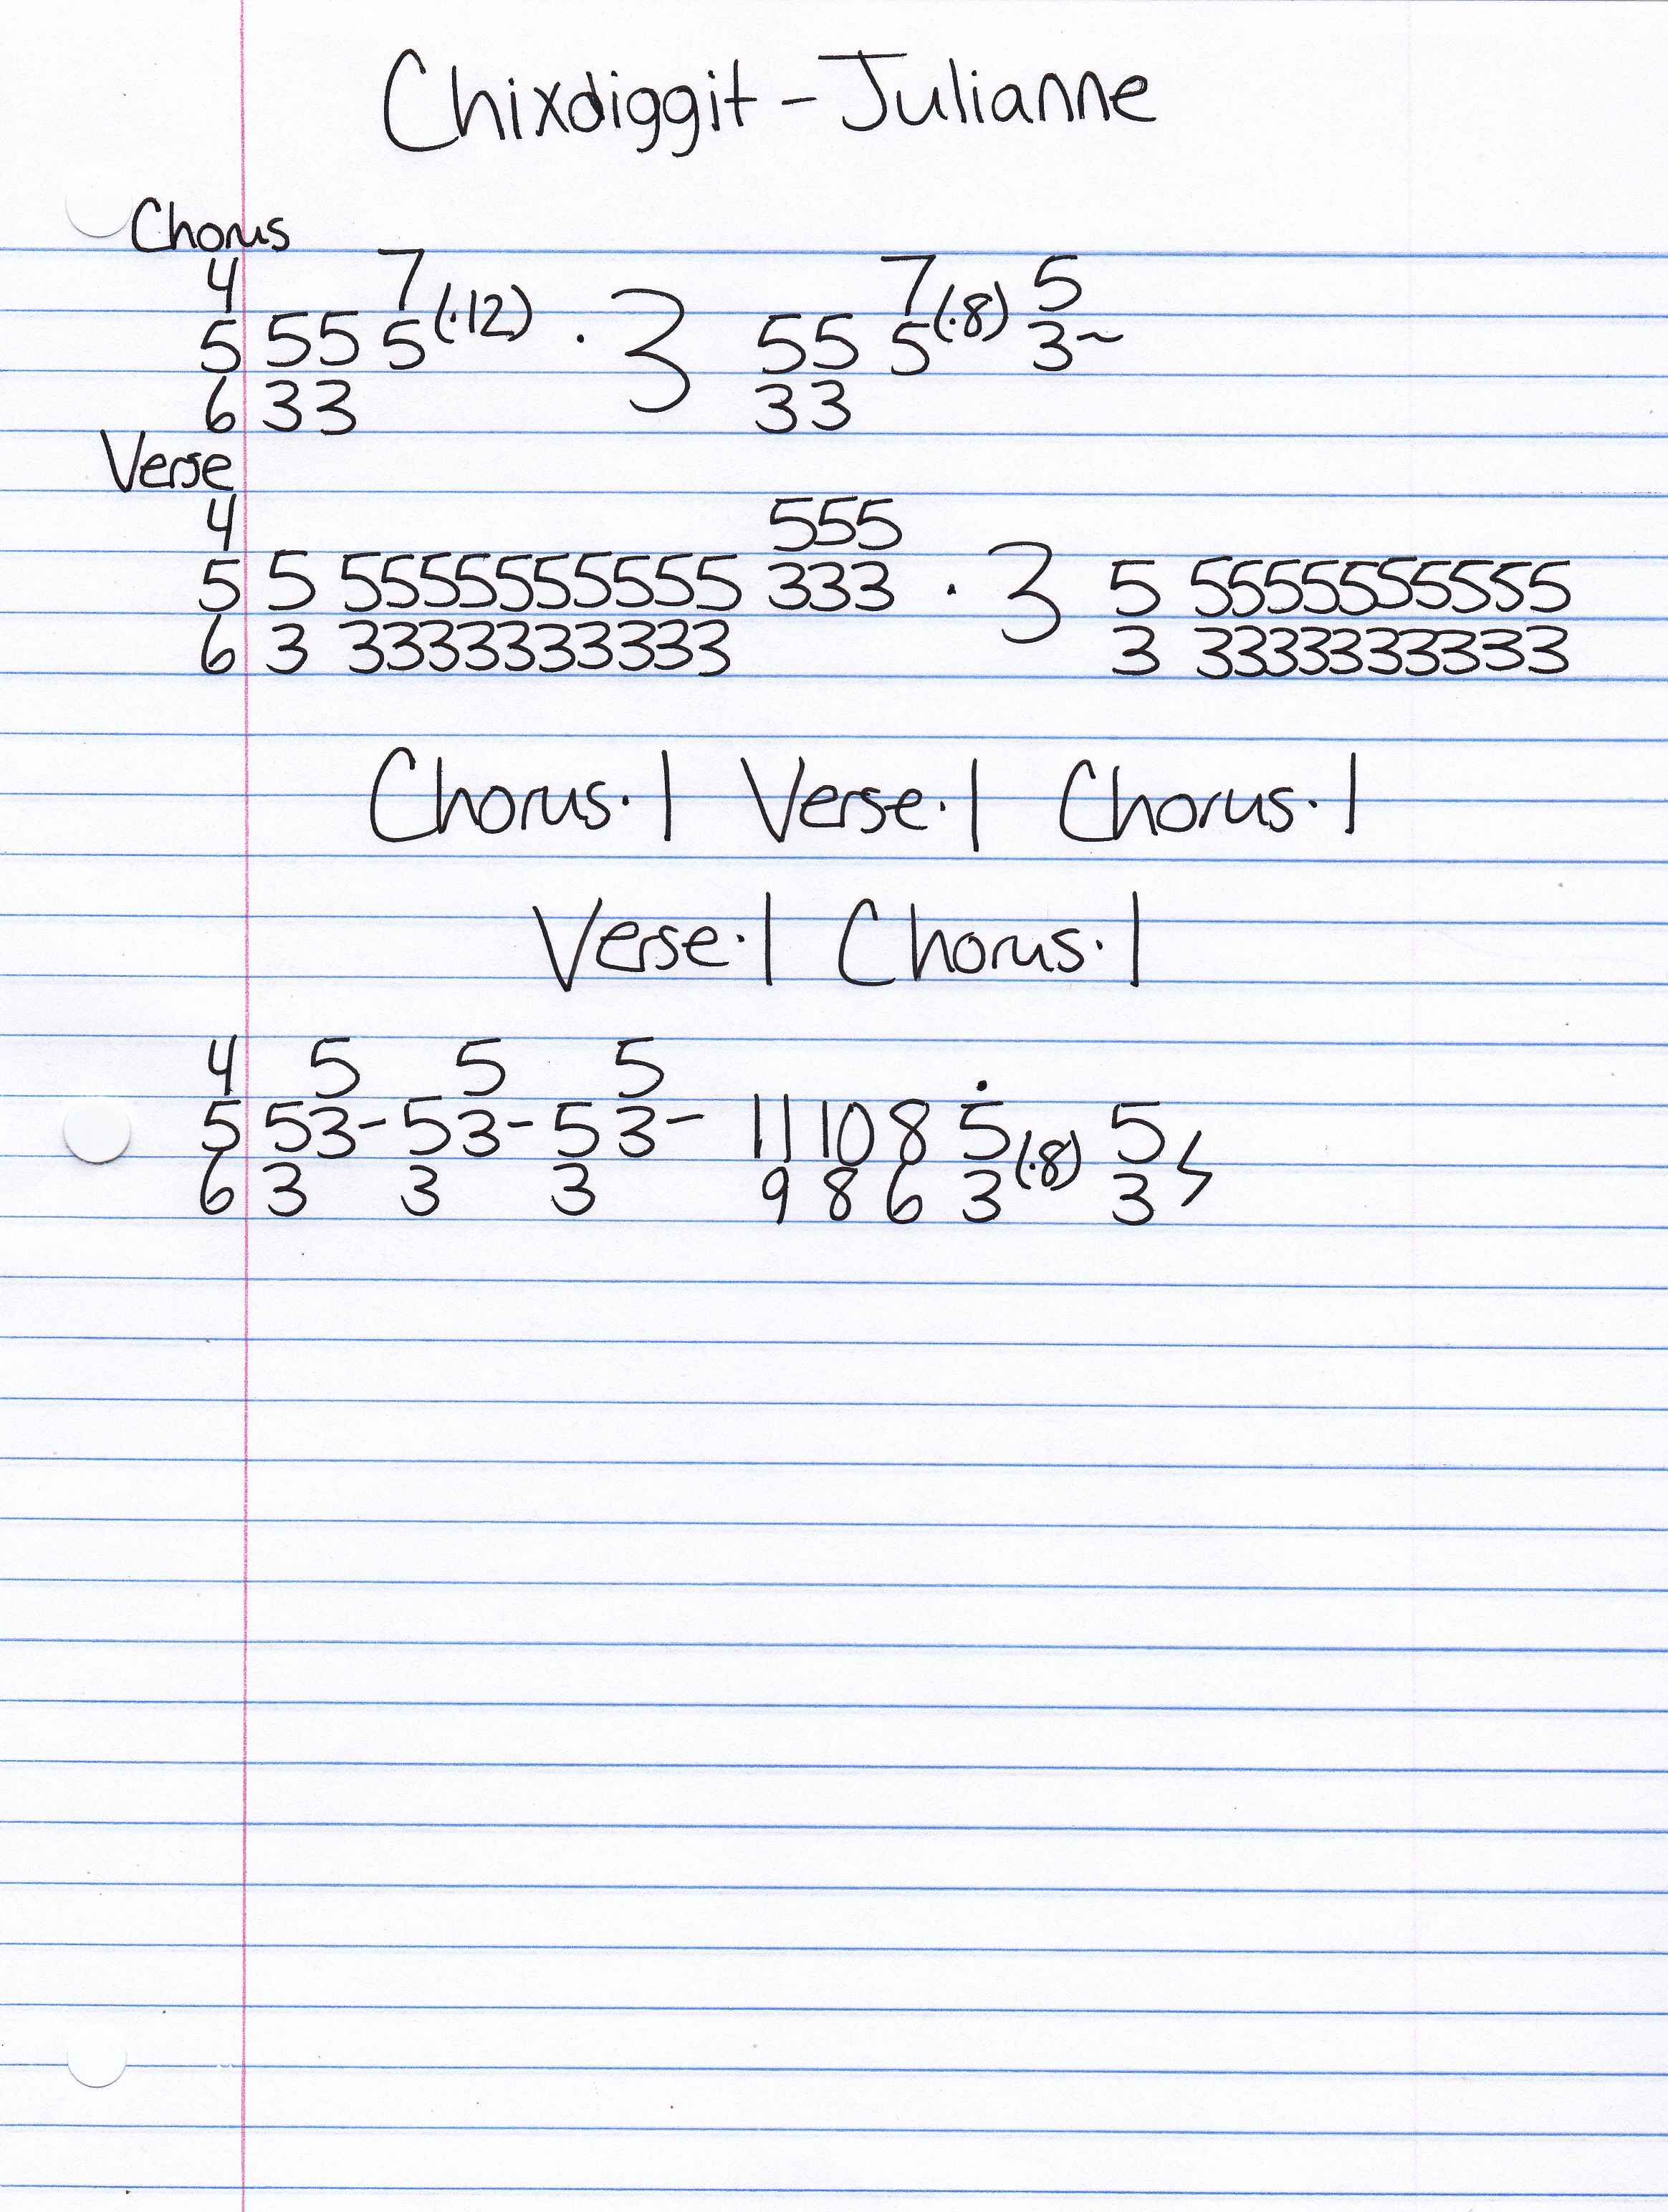 Chixdiggit - Julianne
Chorus
4 7 7 5
5 55 5 (·12) · 3 55 5 (·8) 3~
6 33 33
Verse
4 555
5 5 5555555555 333 · 3 5 5555555555
6 3 3333333333 3 3333333333
Chorus·1 Verse·1 Chorus·1
Verse·1 Chorus·1
4 5 5 5
5 53- 53- 53- 11 10 8 5 (·8) 5
6 3 3 3 9 8 6 3 3